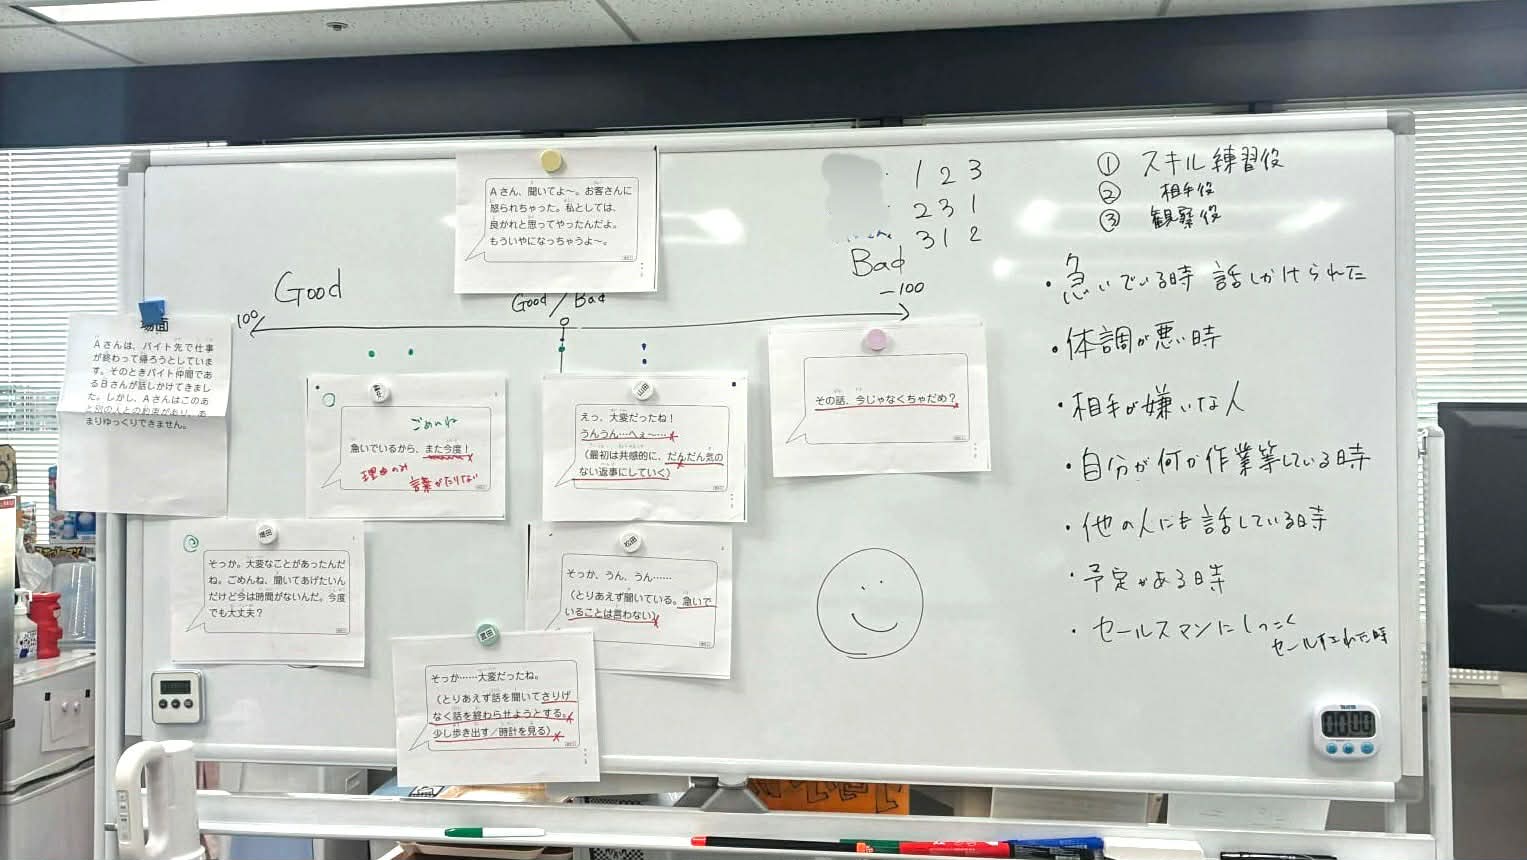 Aさん、聞いてよ〜。お客さんに
怒られちゃった。私としては、
良かれと思ってやったんだよ。
もういやになっちゃうよ〜。
1 2 3
2 3 1
3 1 2
① スキル練習役
② 相手役
③ 観察役
Good
Good/Bad
Bad
100
0
-100
場面
Aさんは、バイト先で仕事
が終わって帰ろうとしていま
す。そのときバイト仲間であ
るBさんが話しかけてきまし
た。しかし、Aさんはこのあ
と別の人との約束があり、あ
まりゆっくりできません。
ごめんね
急いでいるから、また今度!
理由のみ
言葉がたりない
えっ、大変だったね!
うんうん…へぇ〜…
(最初は共感的に、だんだん気の
ない返事にしていく)
その話、今じゃなくちゃだめ?
増田
そっか。大変なことがあったんだ
ね。ごめんね、聞いてあげたいん
だけど今は時間がないんだ。今度
でも大丈夫?
松田
そっか、うん、うん……
(とりあえず聞いている。急いで
いることは言わない)
そっか……大変だったね。
(とりあえず話を聞いてさりげ
なく話を終わらせようとする。
少し歩き出す/時計を見る)
・急いでいる時 話しかけられた
・体調が悪い時
・相手が嫌いな人
・自分が何か作業等している時
・他の人にも話している時
・予定がある時
・セールスマンにしつこく
セールスされた時
00:00